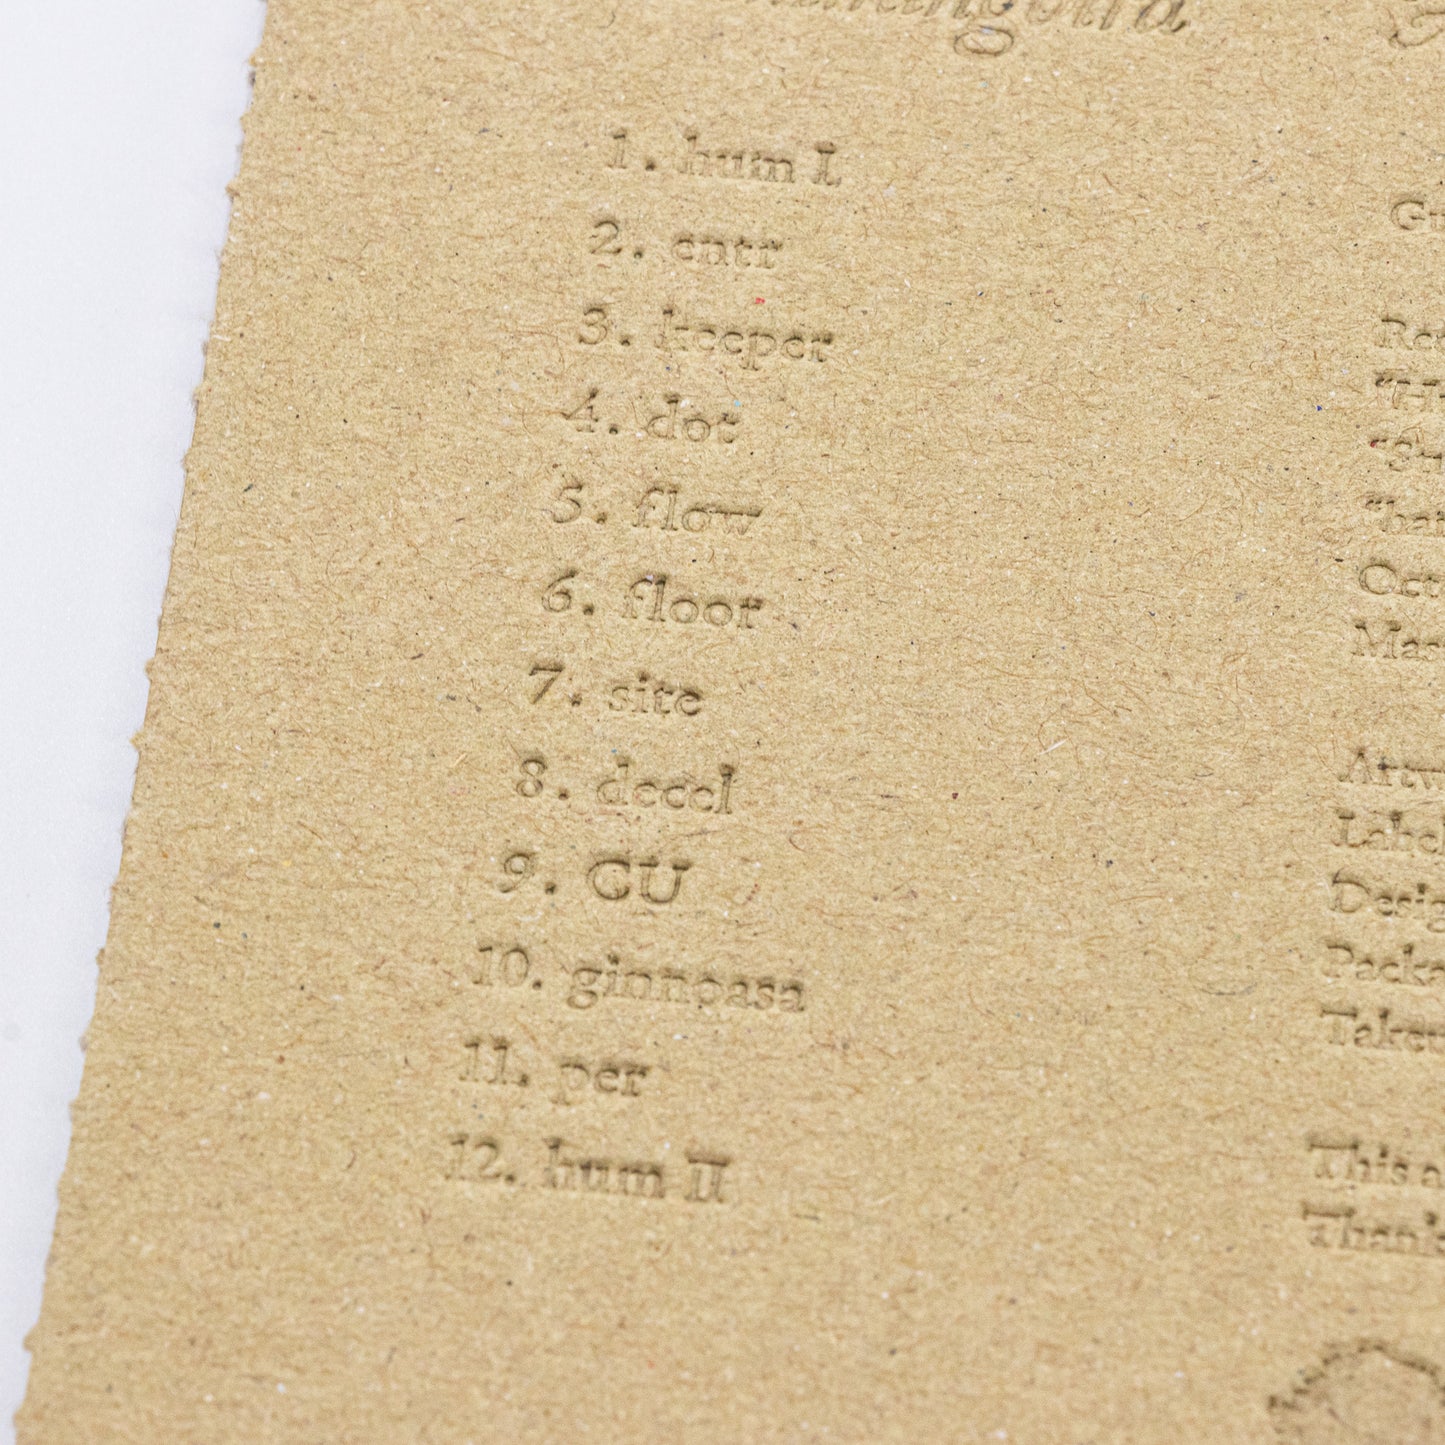 1. hum I
2. entr
3. keeper
4. dot
5. flow
6. floor
7. site
8. decel
9. GU
10. ginnpasa
11. per
12. hum II
Gu
Rec
"H
Oct
Mas
Artw
Label
Desig
Packa
Taket
This a
Thank